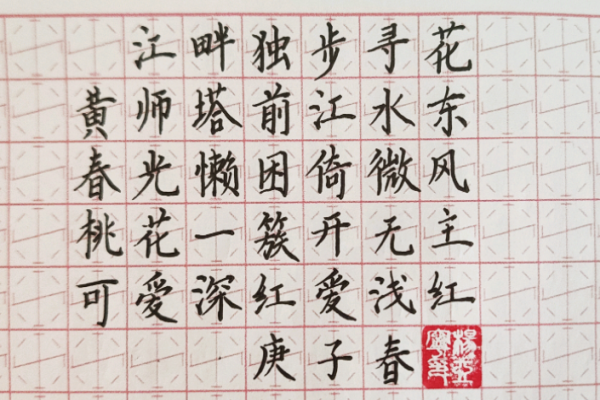 江畔独步寻花
黄师塔前江水东
春光懒困倚微风
桃花一簇开无主
可爱深红爱浅红
庚子春